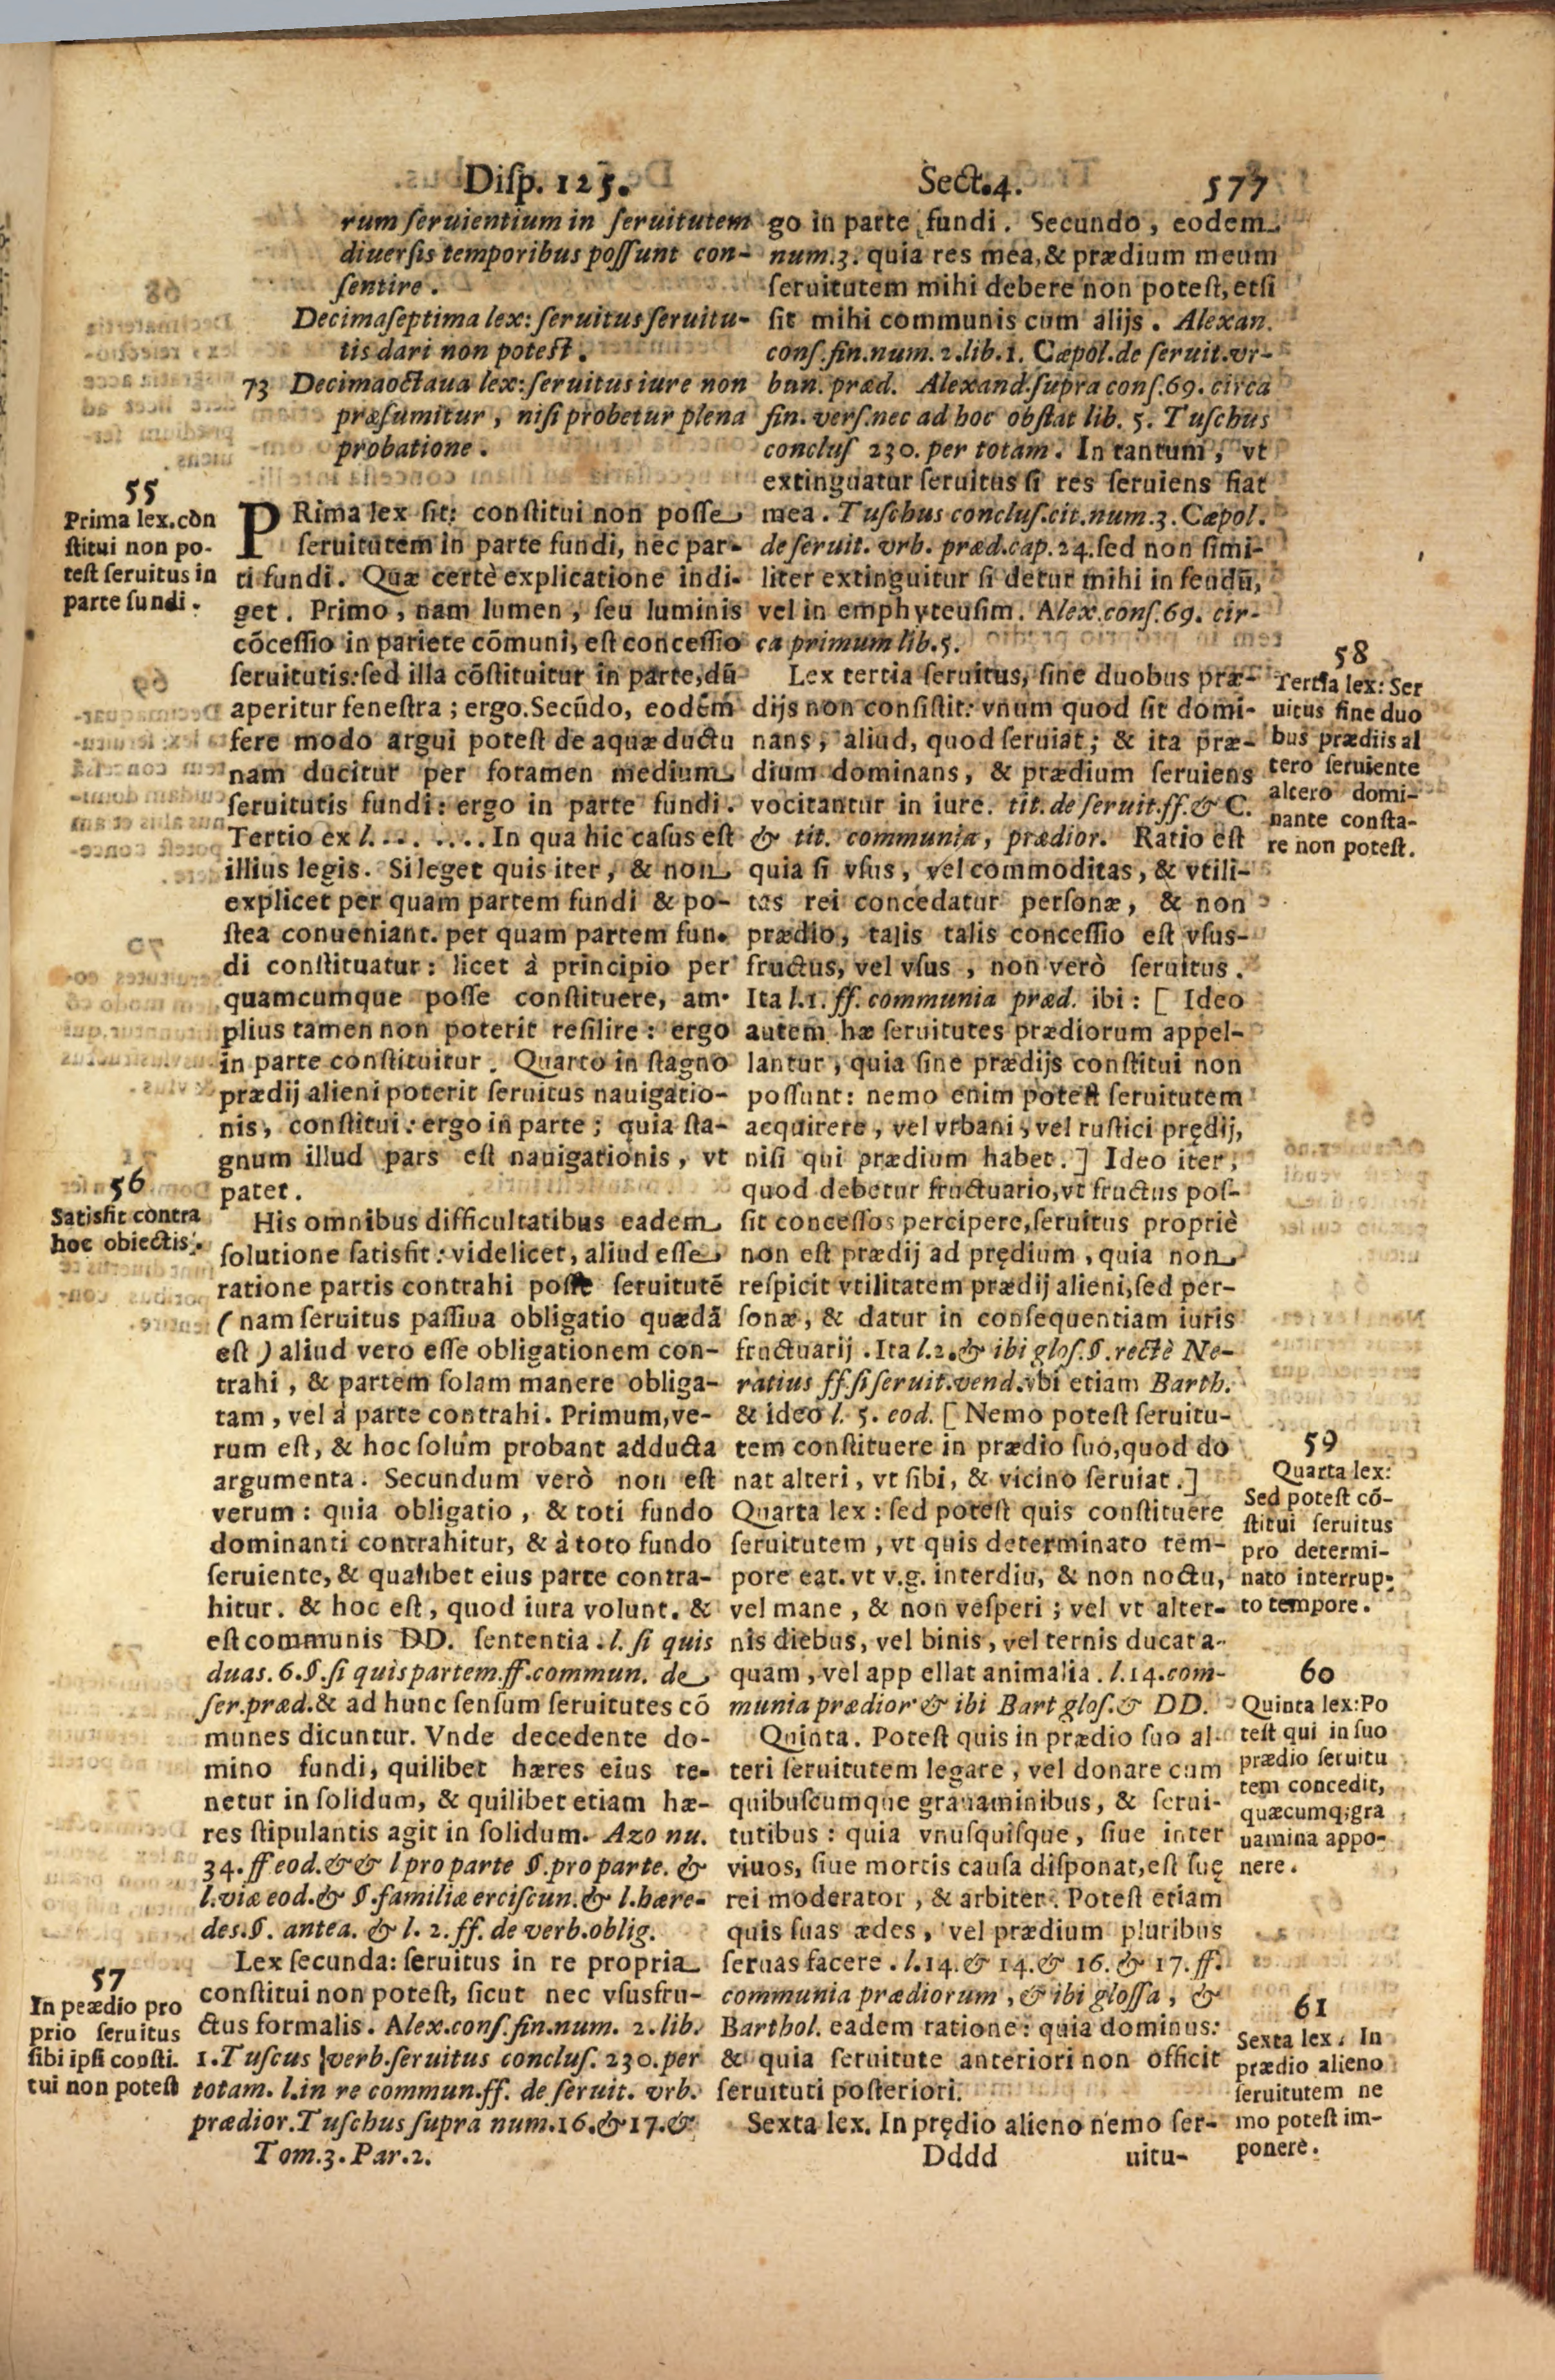 Disp. 125. Sect.4. 577
rum seruientium in seruitutem
diuersis temporibus possunt con-
sentire.
Decimaseptima lex: seruitus seruitu-
tis dari non potest.
73 Decimaoctaua lex: seruitus iure non
præsumitur, nisi probetur plena
probatione.
55
Prima lex.con
stitui non po-
test seruitus in
parte fundi.
PRima lex sit: constitui non posse
seruitutem in parte fundi, nec par-
ti fundi. Quæ certè explicatione indi-
get. Primo, nam lumen, seu luminis
cõcessio in pariete cõmuni, est concessio
seruitutis: sed illa cõstituitur in parte, dũ
aperitur fenestra; ergo. Secũdo, eodem
fere modo argui potest de aquæductu
nam ducitur per foramen medium
seruitutis fundi: ergo in parte fundi.
Tertio ex l. ... .... In qua hic casus est
illius legis. Si leget quis iter, & non
explicet per quam partem fundi & po-
stea conueniant. per quam partem fun.
di constituatur: licet à principio per
quamcumque posse constituere, am-
plius tamen non poterit resilire: ergo
in parte constituitur. Quarto in stagno
prædij alieni poterit seruitus nauigatio-
nis, constitui: ergo in parte; quia sta-
gnum illud pars est nauigationis, vt
patet.
56
Satisfit contra
hoc obiectis.
His omnibus difficultatibus eadem
solutione satisfit: videlicet, aliud esse
ratione partis contrahi posse seruitutẽ
(nam seruitus passiua obligatio quædã
est) aliud vero esse obligationem con-
trahi, & partem solam manere obliga-
tam, vel à parte contrahi. Primum, ve-
rum est, & hoc solùm probant adducta
argumenta. Secundum verò non est
verum: quia obligatio, & toti fundo
dominanti contrahitur, & à toto fundo
seruiente, & qualibet eius parte contra-
hitur. & hoc est, quod iura volunt. &
est communis DD. sententia. l. si quis
duas. 6. §. si quis partem. ff. commun. de
ser. præd. & ad hunc sensum seruitutes cõ
munes dicuntur. Vnde decedente do-
mino fundi, quilibet hæres eius te-
netur in solidum, & quilibet etiam hæ-
res stipulantis agit in solidum. Azo nu.
34. ff eod. & & l pro parte §. pro parte. &
l. viæ eod. & §. familiæ erciscun. & l. hære-
des. §. antea. & l. 2. ff. de verb. oblig.
57
In peædio pro
prio seruitus
sibi ipsi consti.
tui non potest
Lex secunda: seruitus in re propria
constitui non potest, sicut nec vsusfru-
ctus formalis. Alex. cons. fin. num. 2. lib.
1. Tuscus verb. seruitus conclus. 230. per
totam. l. in re commun. ff. de seruit. vrb.
prædior. Tuschus supra num. 16. & 17. &
Tom.3. Par.2.
go in parte fundi. Secundo, eodem
num. 3. quia res mea, & prædium meum
seruitutem mihi debere non potest, etsi
sit mihi communis cum alijs. Alexan.
cons. fin. num. 2. lib. 1. Cæpol. de seruit. vr-
ban. præd. Alexand. supra cons. 69. circa
fin. vers. nec ad hoc obstat lib. 5. Tuschus
conclus 230. per totam. In tantum, vt
extinguatur seruitus si res seruiens fiat
mea. Tuschus conclus. cit. num. 3. Cæpol.
de seruit. vrb. præd. cap. 24. sed non simi-
liter extinguitur si detur mihi in feudũ,
vel in emphyteusim. Alex. cons. 69. cir-
ca primum lib. 5.
58
Tertia lex: Ser
uitus sine duo
bus prædiis al
tero seruiente
altero domi-
nante consta-
re non potest.
Lex tertia seruitus, sine duobus præ-
dijs non consistit: vnum quod sit domi-
nans, aliud, quod seruiat; & ita præ-
dium dominans, & prædium seruiens
vocitantur in iure. tit. de seruit. ff. & C.
& tit. communia, prædior. Ratio est
quia si vsus, vel commoditas, & vtili-
tas rei concedatur personæ, & non
prædio, talis talis concessio est vsus-
fructus, vel vsus, non verò seruitus.
Ita l. 1. ff. communia præd. ibi: [ Ideo
autem hæ seruitutes prædiorum appel-
lantur, quia sine prædijs constitui non
possunt: nemo enim potest seruitutem
acquirere, vel vrbani, vel rustici prędij,
nisi qui prædium habet.] Ideo iter,
quod debetur fructuario, vt fructus pos-
sit concessos percipere, seruitus propriè
non est prædij ad prędium, quia non
respicit vtilitatem prædij alieni, sed per-
sonæ, & datur in consequentiam iuris
fructuarij. Ita l. 2. & ibi glos. §. rectè Ne-
ratius ff. si seruit. vend. vbi etiam Barth.
& ideo l. 5. eod. [ Nemo potest seruitu-
tem constituere in prædio suo, quod do
nat alteri, vt sibi, & vicino seruiat.]
59
Quarta lex:
Sed potest cõ-
stitui seruitus
pro determi-
nato interrup-
to tempore.
Quarta lex: sed potest quis constituere
seruitutem, vt quis determinato tem-
pore eat. vt v.g. interdiu, & non noctu,
vel mane, & non vesperi; vel vt alter-
nis diebus, vel binis, vel ternis ducat a-
quam, vel app ellat animalia. l. 14. com-
munia prædior & ibi Bart glos. & DD.
60
Quinta lex: Po
test qui in suo
prædio seruitu
tem concedit,
quæcumq; gra
uamina appo-
nere.
Quinta. Potest quis in prædio suo al-
teri seruitutem legare, vel donare cum
quibuscumque grauaminibus, & serui-
tutibus: quia vnusquisque, siue inter
viuos, siue mortis causa disponat, est suę
rei moderator, & arbiter. Potest etiam
quis suas ædes, vel prædium pluribus
seruas facere. l. 14. & 14. & 16. & 17. ff.
communia prædiorum, & ibi glossa, &
Barthol. eadem ratione: quia dominus:
& quia seruitute anteriori non officit
seruituti posteriori.
61
Sexta lex. In
prædio alieno
seruitutem ne
mo potest im-
ponere.
Sexta lex. In prędio alieno nemo ser-
Dddd uitu-